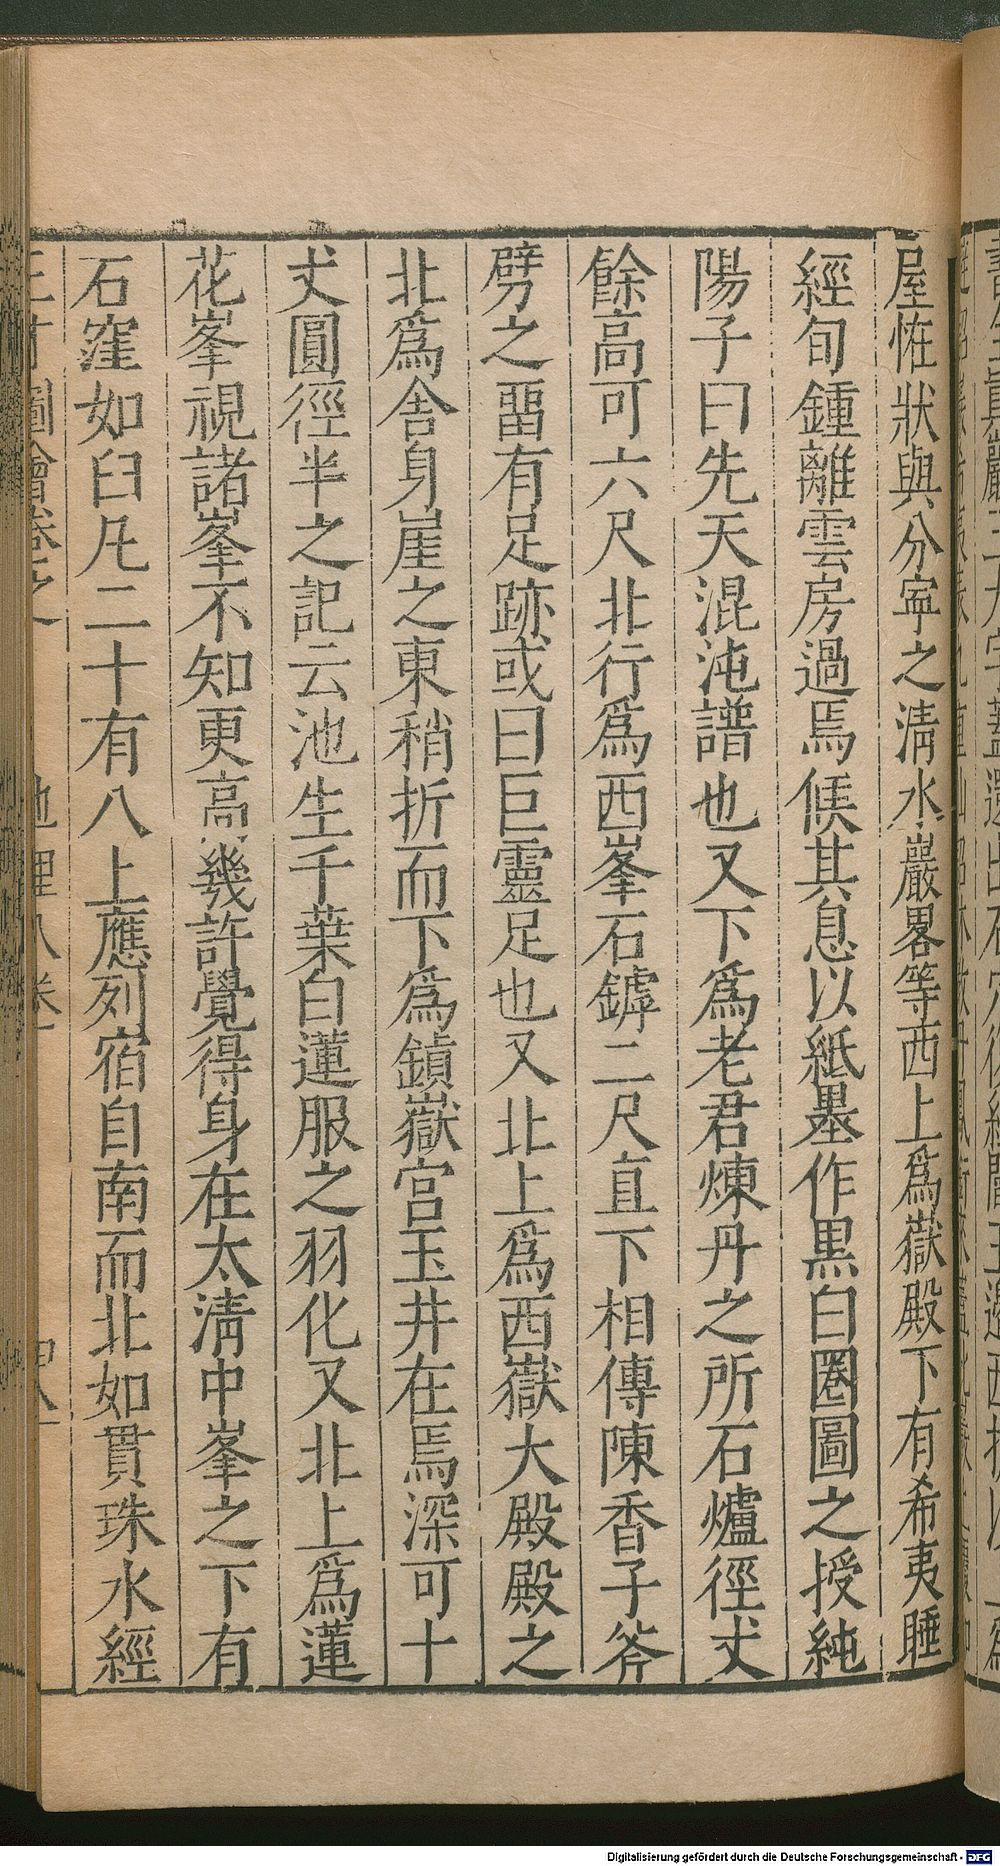 屋恠狀與分寧之淸水巖畧等西上爲嶽殿下有希夷睡
經旬鍾離雲房過焉候其息以紙墨作黑白圈圖之授純
陽子曰先天混沌譜也又下爲老君煉丹之所石爐徑丈
餘高可六尺北行爲西峯石罅二尺直下相傳陳香子斧
劈之罶有足跡或曰巨靈足也又北上爲西嶽大殿殿之
北爲舍身崖之東稍折而下爲鎮嶽宮玉井在焉深可十
丈圓徑半之記云池生千葉白蓮服之羽化又北上爲蓮
花峯視諸峯不知更高幾許覺得身在太淸中峯之下有
石窪如臼凡二十有八上應列宿自南而北如貫珠水經
圖會卷之 地理八卷
Digitalisierung gefördert durch die Deutsche Forschungsgemeinschaft - DFG